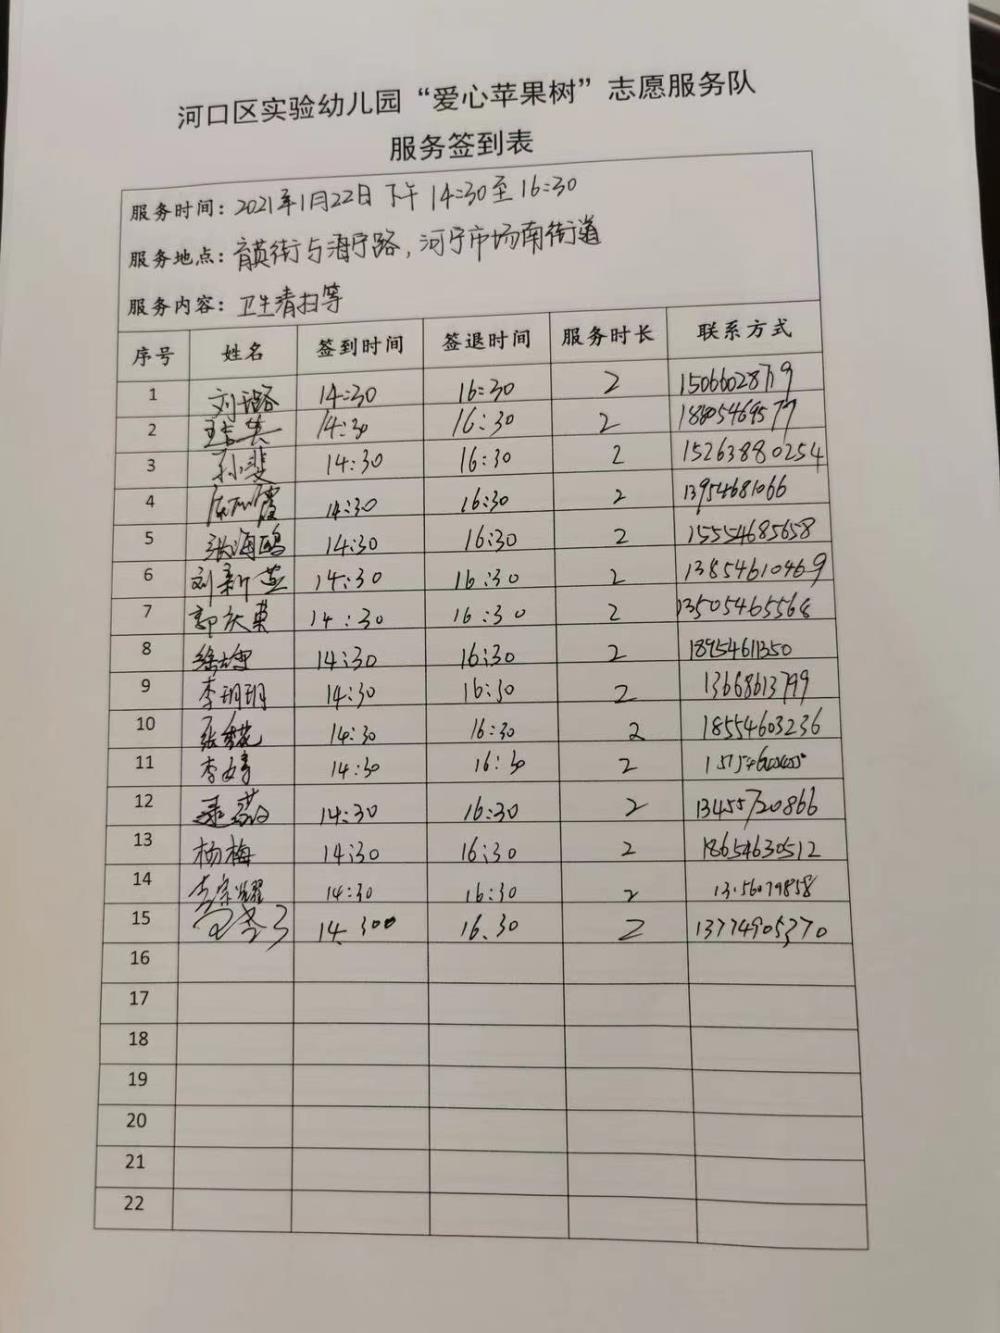 河口区实验幼儿园“爱心苹果树”志愿服务队
服务签到表
服务时间：2021年1月22日下午14:30至16:30
服务地点：育英街与海宁路，河宁市场南街道
服务内容：卫生清扫等
序号 姓名 签到时间 签退时间 服务时长 联系方式
1 刘璐 14:30 16:30 2
2 14:30 16:30 2
3 孙斐 14:30 16:30 2 15263880254
4 14:30 16:30 2 13954681066
5 张海鸥 14:30 16:30 2 15554685658
6 刘新燕 14:30 16:30 2 13854610469
7 14:30 16:30 2 13505465568
8 14:30 16:30 2 18954611350
9 李玥玥 14:30 16:30 2 13668613799
10 14:30 16:30 2 18554603236
11 李婧 14:30 16:30 2
12 14:30 16:30 2 13455720866
13 杨梅 14:30 16:30 2 18654630512
14 李宗耀 14:30 16:30 2
15 14.300 16.30 2 13774905370
16
17
18
19
20
21
22